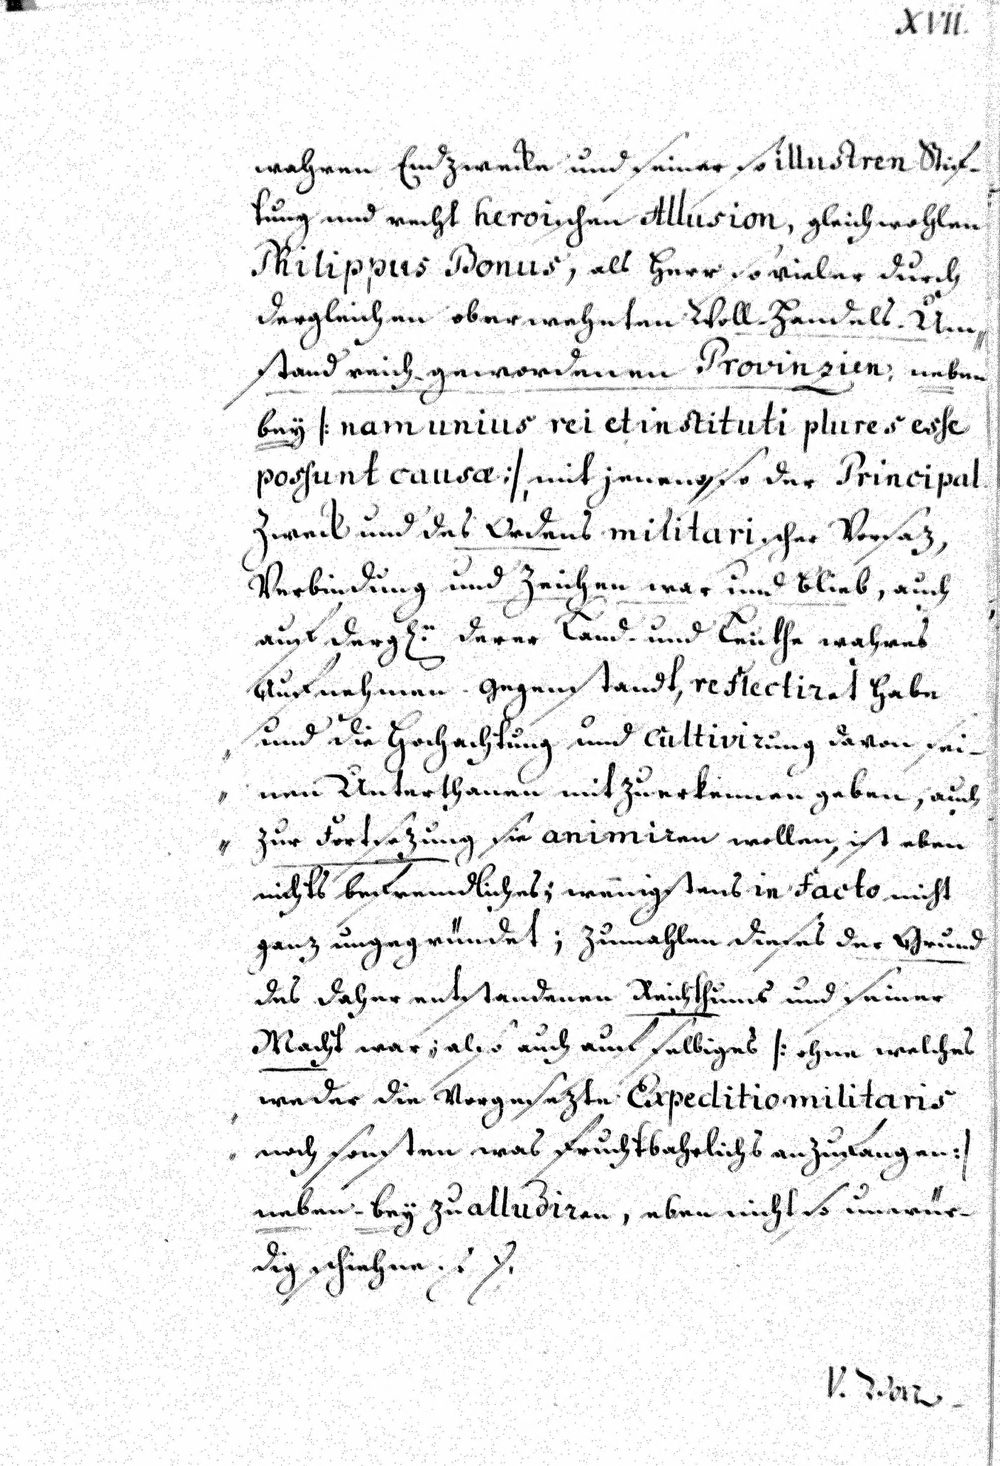 XVII.
wahren Endzwecke und seiner so illustren Stif-
tung und recht heroischen Allusion, gleichwohlen
Philippus Bonus, als Herr so vieler durch
dergleichen oberwehnten Woll-Handels-Um-
stand reich-gewordenen Provinzien, neben
bey /: nam unius rei et instituti plures esse
possunt causæ :/, mit jenem, so der Principal
Zweck und des Ordens militarischer Vorsaz,
Verbindung und Zeichen war und blieb, auch
auf dergl: derer Land- und Leuthe wahres
Aufnehmen-Gegenstandt, reflectiret habe
und die Hochachtung und cultivirung davon sei-
nen Unterthanen mit zuerkennen geben, auch
zur Fortsezung sie animiren wollen, ist eben
nichts befremdliches; wenigstens in Facto nicht
ganz ungegründet; zumahlen dieses der Grund
des daher entstandenen Reichthums und seiner
Macht war; also auch auf selbiges /: ohne welches
weder die Vorgesezte Expeditio militaris
noch sonsten was fruchtbahrlichs anzufangen :/
neben-bey zu alludiren, eben nicht so unwür-
dig schiehne.
V.